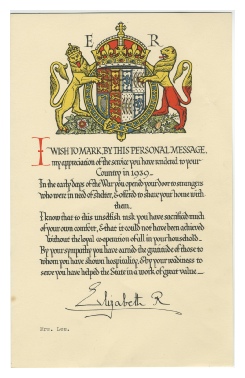 E R
I WISH TO MARK, BY THIS PERSONAL MESSAGE,
my appreciation of the service you have rendered to your
Country in 1939.
In the early days of the War you opened your door to strangers
who were in need of shelter, & offered to share your home with
them.
I know that to this unselfish task you have sacrificed much
of your own comfort, & that it could not have been achieved
without the loyal co-operation of all in your household.
By your sympathy you have earned the gratitude of those to
whom you have shown hospitality, & by your readiness to
serve you have helped the State in a work of great value.
Elizabeth R
Mrs. Lee.